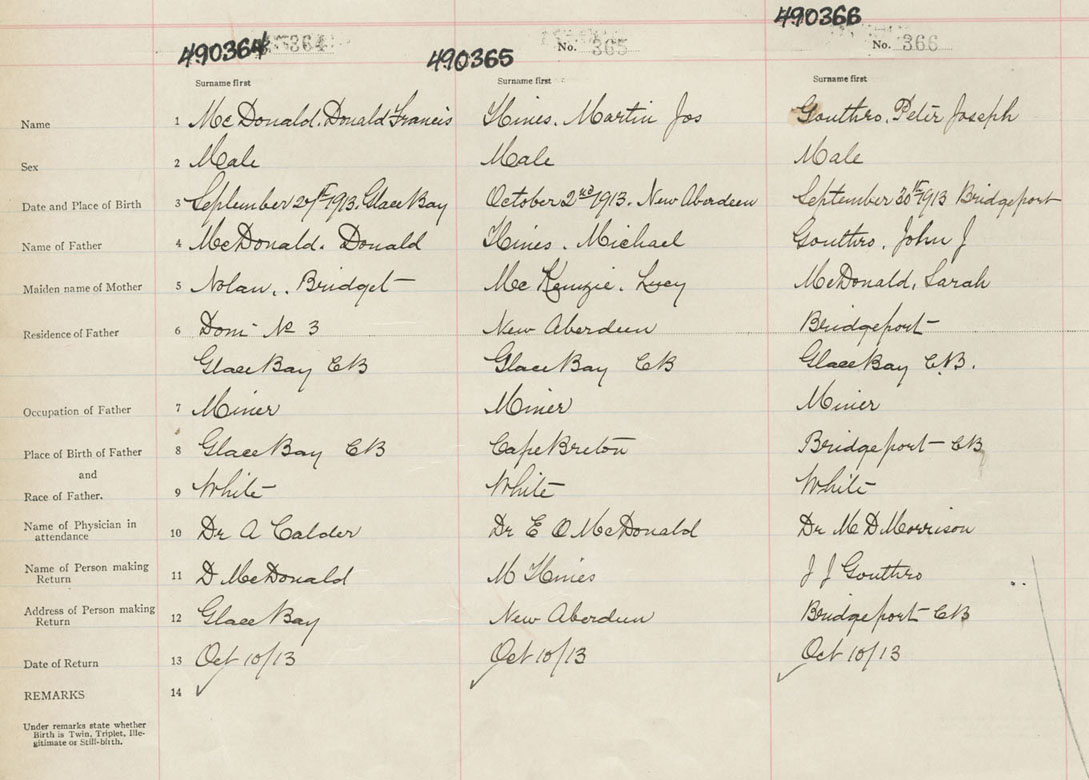 490364 364 490365 No. 365 490366 No. 366
Surname first Surname first Surname first
Name 1 Mc Donald. Donald Francis Hines. Martin Jos Gouthro. Peter Joseph
Sex 2 Male Male Male
Date and Place of Birth 3 September 1913. Glace Bay October 2nd 1913. New Aberdeen September 30th 1913 Bridgeport
Name of Father 4 McDonald. Donald Hines. Michael Gouthro. John J
Maiden name of Mother 5 Nolan.. Bridget Mc Kenzie. Lucy McDonald, Sarah
Residence of Father 6 Dom No 3 New Aberdeen Bridgeport
Glace Bay CB Glace Bay CB Glace Bay C.B.
Occupation of Father 7 Miner Miner Miner
Place of Birth of Father 8 Glace Bay CB Cape Breton Bridgeport CB
and
Race of Father. 9 White White White
Name of Physician in
attendance 10 Dr A Calder Dr E O McDonald Dr M D Morrison
Name of Person making
Return 11 D McDonald M Hines J J Gouthro
Address of Person making
Return 12 Glace Bay New Aberdeen Bridgeport CB
Date of Return 13 Oct 10/13 Oct 10/13 Oct 10/13
REMARKS 14
Under remarks state whether
Birth is Twin, Triplet, Ille-
gitimate or Still-birth.